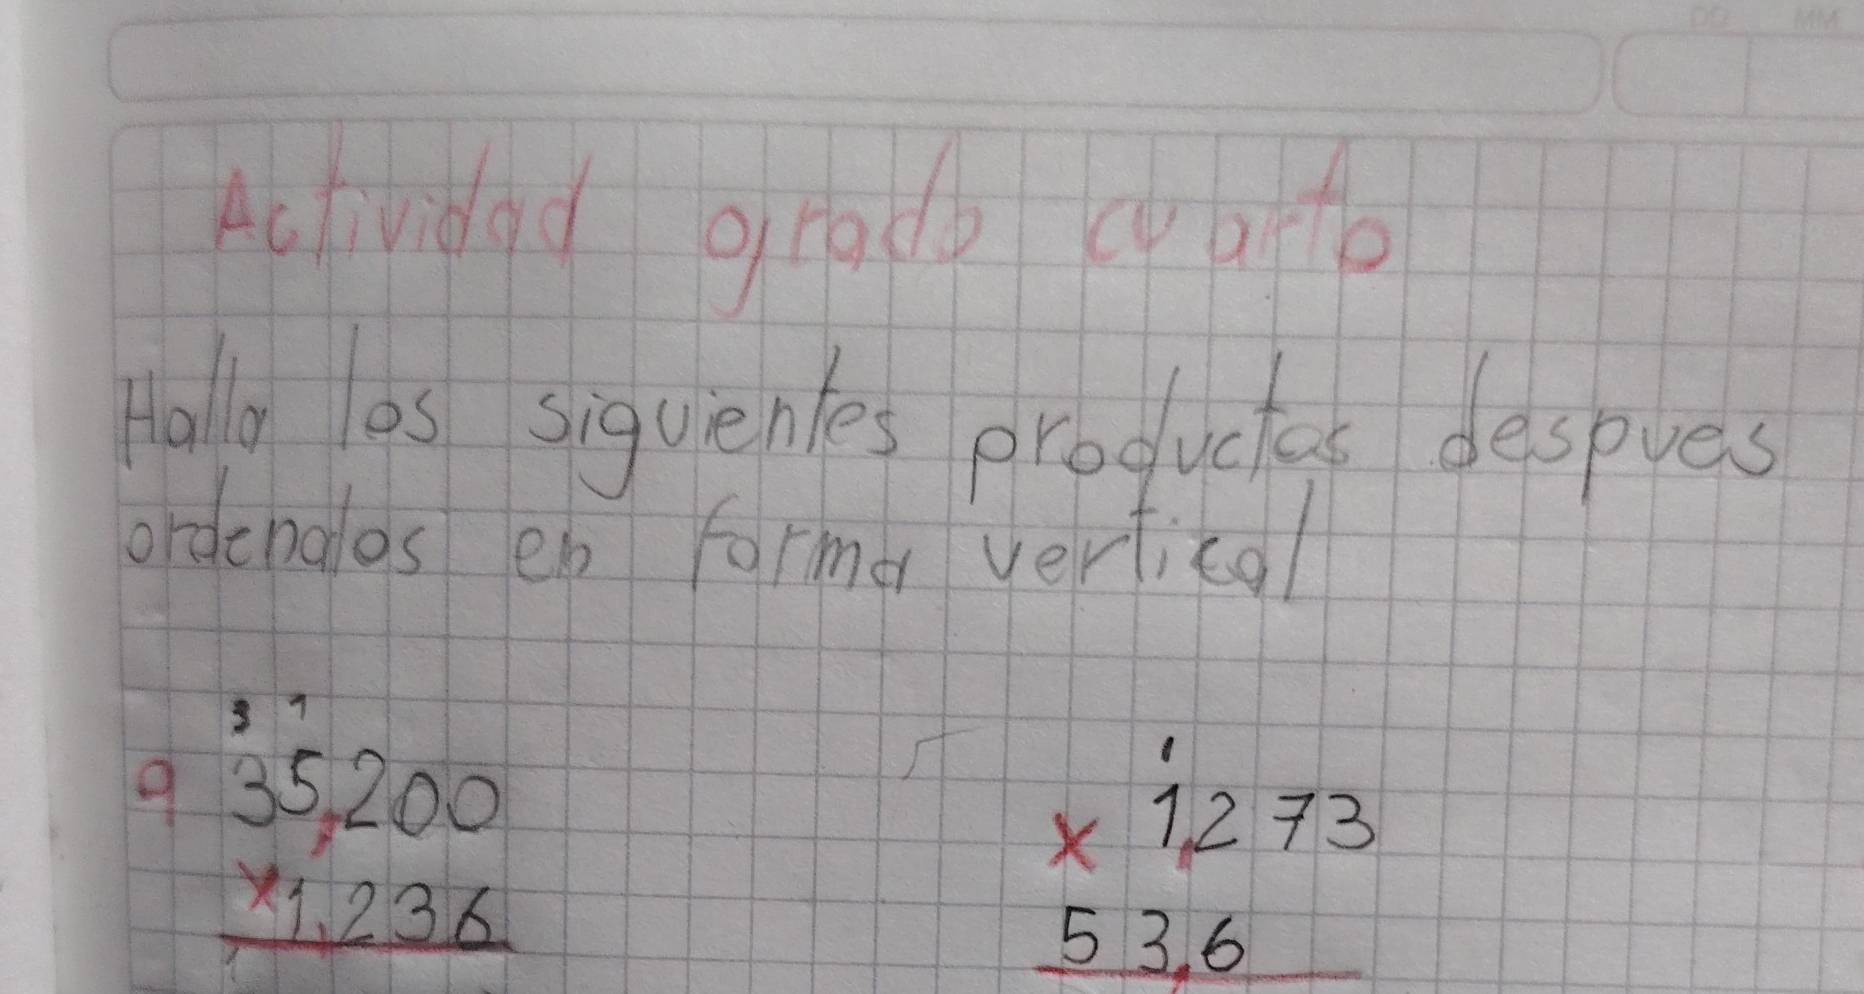 DD MM
Actividad grado cuarto
Halla los siguientes productos despues
ordenalos en forma vertical
3 1
a 35,200
x 1,236
1
x 1,273
53,6